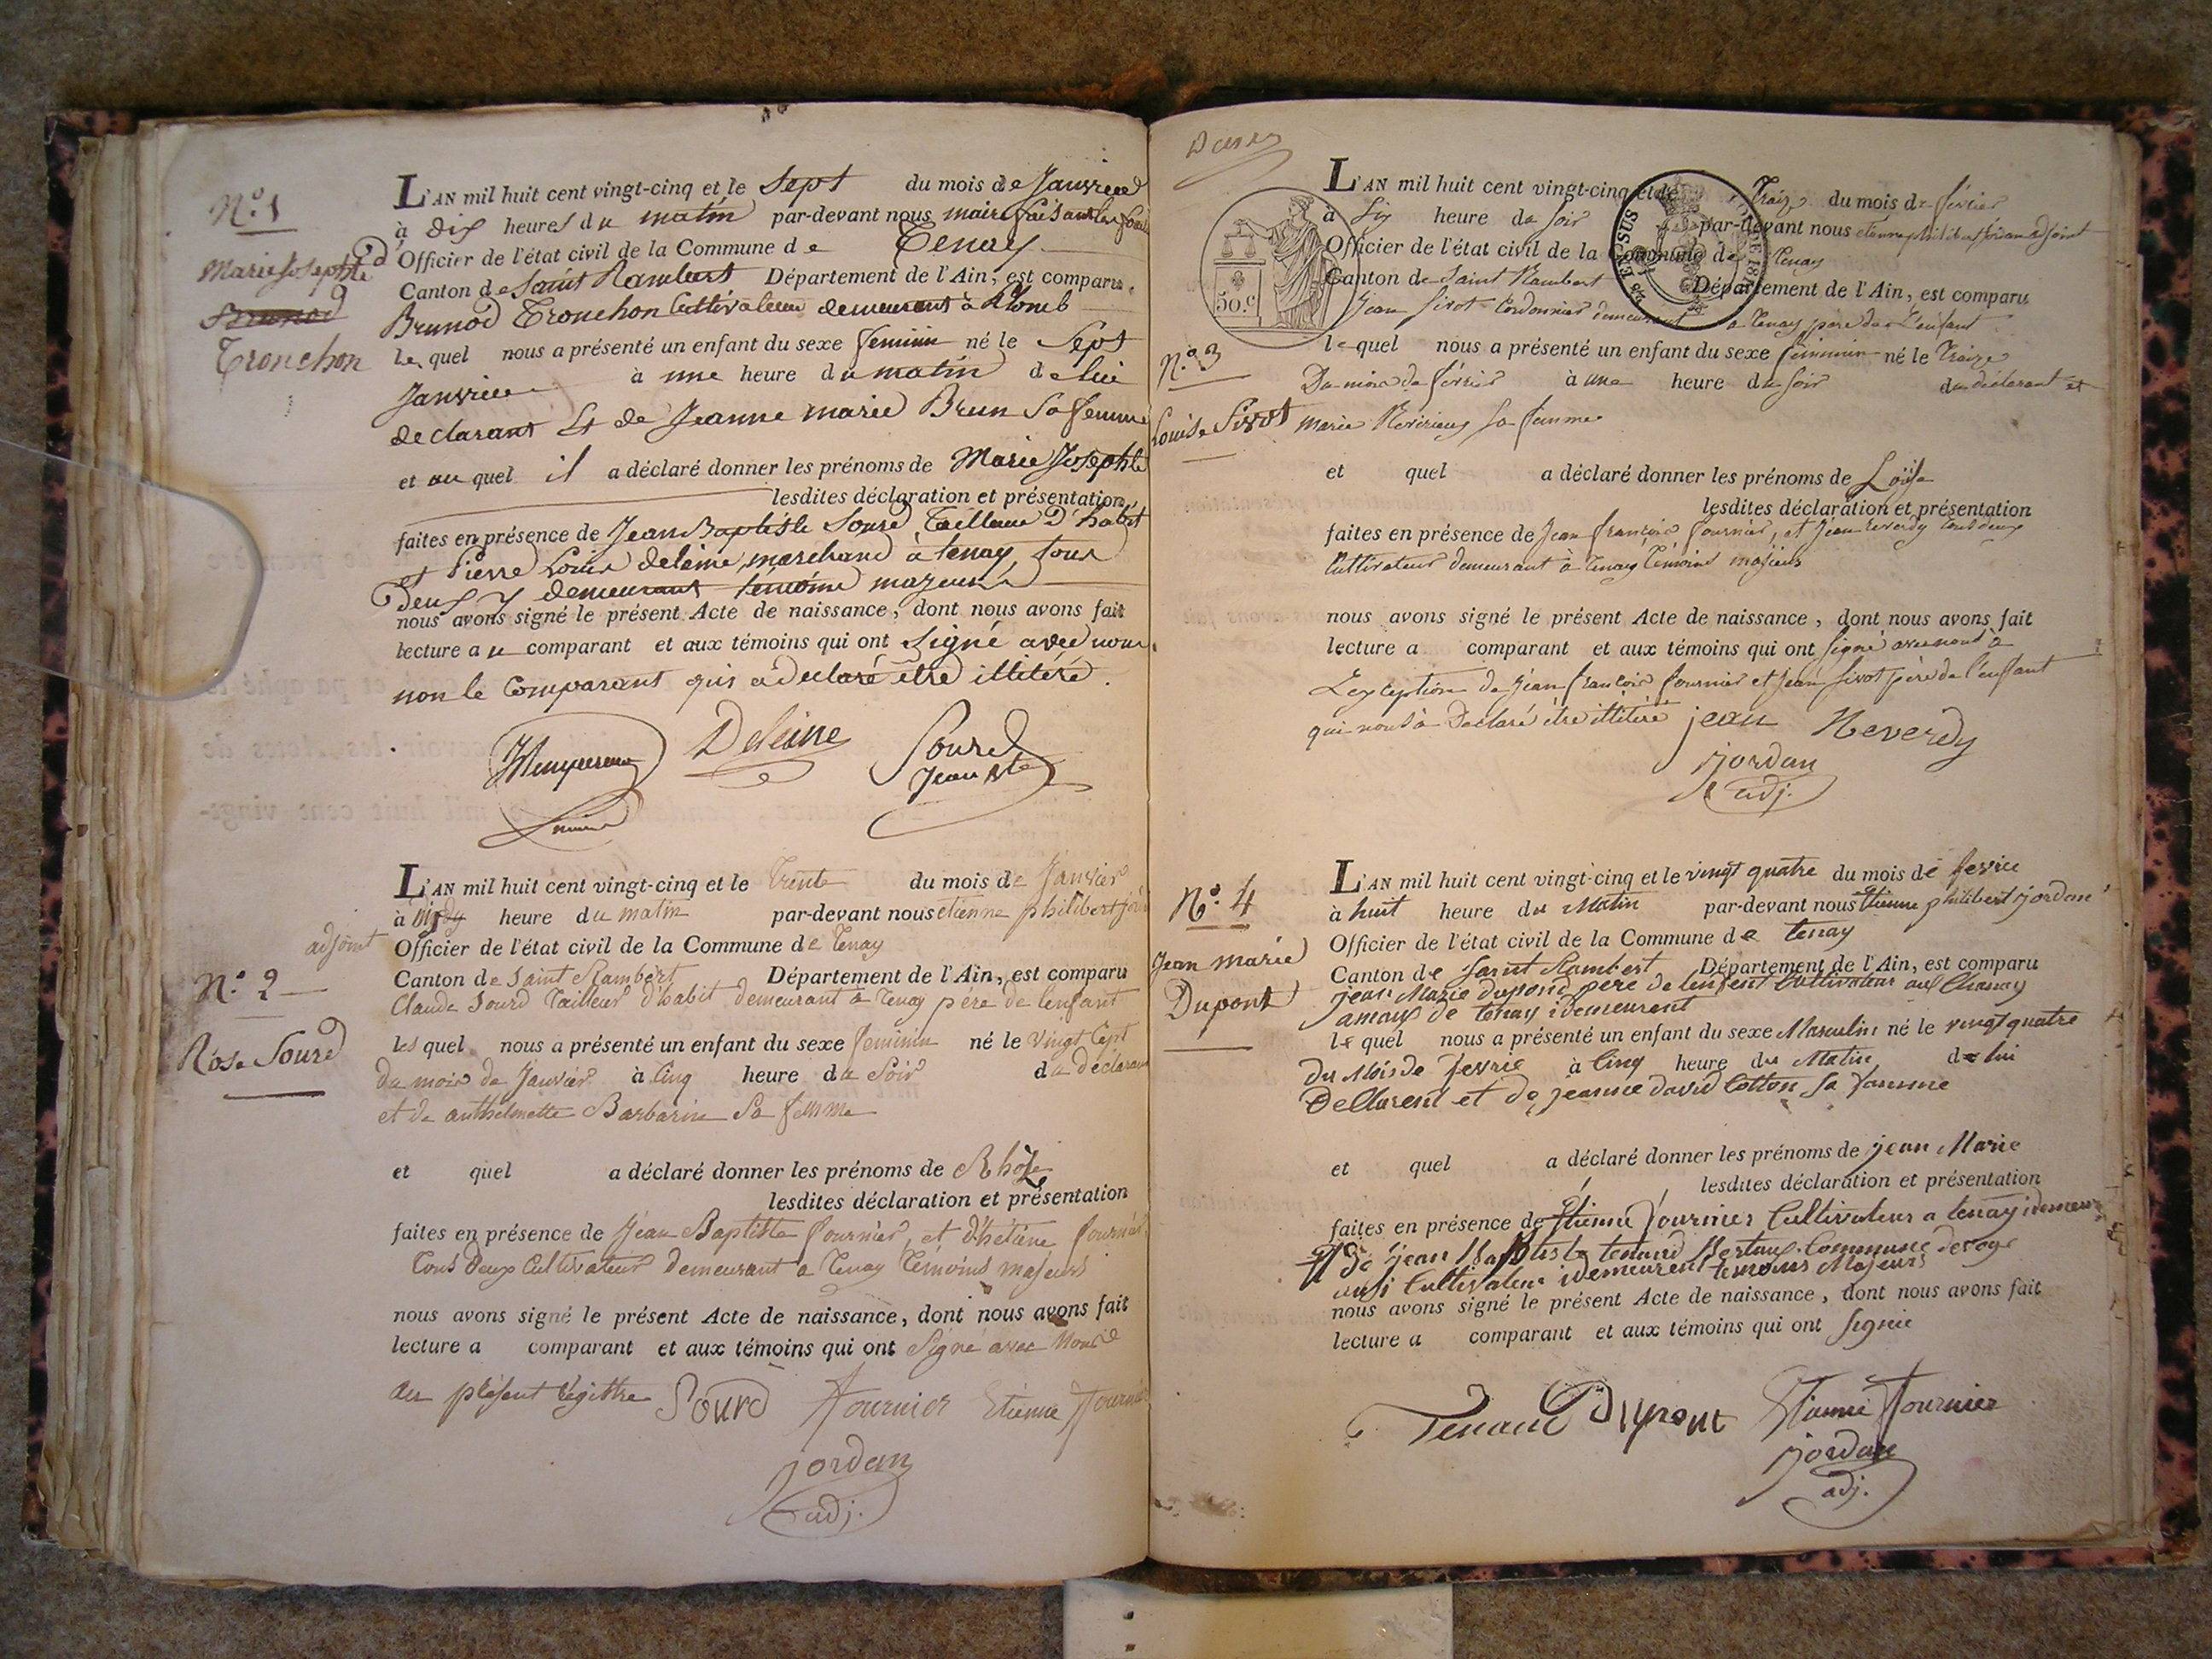 N.o 1
Marie Josephte
Brunod
Tronchon
L'AN mil huit cent vingt-cinq et le sept du mois de Janvier
à dix heures du matin par-devant nous maire faisant les fonc
d'Officier de l'état civil de la Commune de Tenay
Canton de Saint Rambert Département de l'Ain, est comparu
Brunod Tronchon Cultivateur demeurant à
le quel nous a présenté un enfant du sexe feminin né le Sept
Janvier à une heure du matin de lui
declarant Et de Jeanne marie Brun Sa femme
et au quel il a déclaré donner les prénoms de Marie Josephte
lesdites déclaration et présentation,
faites en présence de Jean Baptiste Sourd Tailleur D'habit
et Pierre Louis deleine, marchand à tenay, tous
Deux y demeurant témoins majeurs
nous avons signé le présent Acte de naissance, dont nous avons fait
lecture au comparant et aux témoins qui ont Signé avec nous,
non le Comparant qui a declaré être illitéré.
Deleine Sourd
Jean Bte
adjoint
N.o 2
Rose Sourd
L'AN mil huit cent vingt-cinq et le Trente du mois de Janvier
à heure du matin par-devant nous etienne philibert
Officier de l'état civil de la Commune de Tenay
Canton de Saint Rambert Département de l'Ain, est comparu
Claude Sourd Tailleur d'habit demeurant à Tenay père de l'enfant
les quel nous a présenté un enfant du sexe feminin né le Vingt Sept
du mois de Janvier à Cinq heure du Soir du déclarant
et de anthelmette Barbarin Sa femme
et quel a déclaré donner les prénoms de Rhôze
lesdites déclaration et présentation
faites en présence de Jean Baptiste fournier, et d'hétiène fournier
Tous Deux Cultivateur Demeurant a Tenay Témoins majeurs
nous avons signé le présent Acte de naissance, dont nous avons fait
lecture a comparant et aux témoins qui ont Signé avec Nous
au présent régistre Sourd fournier Etienne fournier
jordan
adj.
50.c
N.o 3
Louise Sivot
L'AN mil huit cent vingt-cinq et le Traize du mois de février
à Six heure du soir par-devant nous etienne philibert jordan adjoint
Officier de l'état civil de la Commune de Tenay
Canton de Saint Rambert Département de l'Ain, est comparu
Jean Sivot Cordonnier demeurant a Tenay père de L'enfant
le quel nous a présenté un enfant du sexe féminin né le Traize
Du mois de février à une heure du soir du déclarant et
marie sa femme
et quel a déclaré donner les prénoms de Loüise
lesdites déclaration et présentation
faites en présence de Jean françois fournier, et Jean reverdy tous deux
Cultivateur demeurant à Tenay Témoins majeurs
nous avons signé le présent Acte de naissance, dont nous avons fait
lecture a comparant et aux témoins qui ont signé avec nous à
L'exception de jean françois fournier et jean sivot père de l'enfant
qui nous à Déclaré être illitéré jean Reverdy
jordan
adj.
N.o 4
Jean marie
Dupont
L'AN mil huit cent vingt-cinq et le vingt quatre du mois de fevrie
à huit heure du Matin par-devant nous Etienne philibert jordan
Officier de l'état civil de la Commune de tenay
Canton de Saint Rambert Département de l'Ain, est comparu
jean Marie dupond pere de lenfent Cultivateur aux
de tenay idemeurent
le quel nous a présenté un enfant du sexe Masculin né le vingt quatre
du Mois de fevrie à Cinq heure du Matin de lui
Dellarent et de jeanne david Cotton sa famme
et quel a déclaré donner les prénoms de jean Marie
lesdites déclaration et présentation
faites en présence de Etienne fournier Cultivateur a tenay idemeur
de jean Baptiste tenand Commune
ausi Cultivateur idemeurent temoins Majeurs
nous avons signé le présent Acte de naissance, dont nous avons fait
lecture a comparant et aux témoins qui ont signié
Tenand Dupont Etienne fournier
jordan
adj.